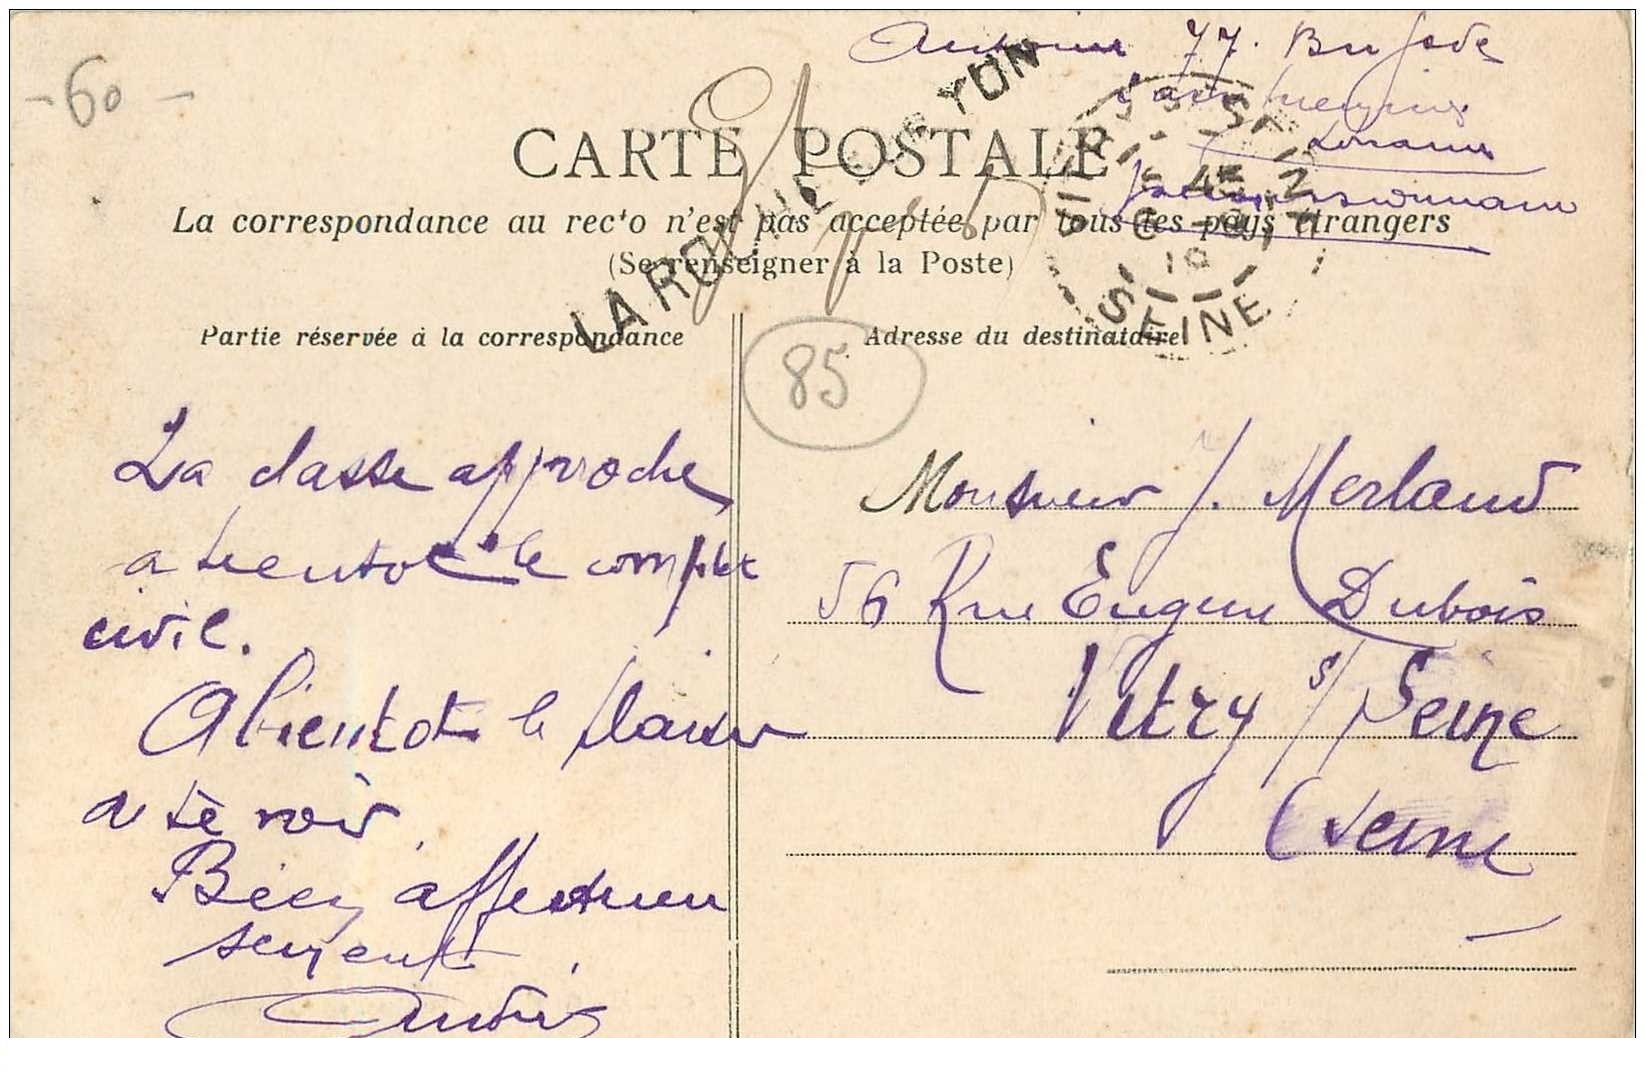 77.
- 60 -
CARTE POSTALE
LA ROCHE - S - YON
La correspondance au recto n'est pas acceptée par tous les pays étrangers
(Se renseigner à la Poste)
SEINE
10
Partie réservée à la correspondance
Adresse du destinataire
85
La classe approche
a bientot le complet
civil.
A bientot le plaisir
a te voir
Bien affectueu
sement
Monsieur J. Merland
56 Rue Eugene Dubois
Vitry s/ Seine
(Seine